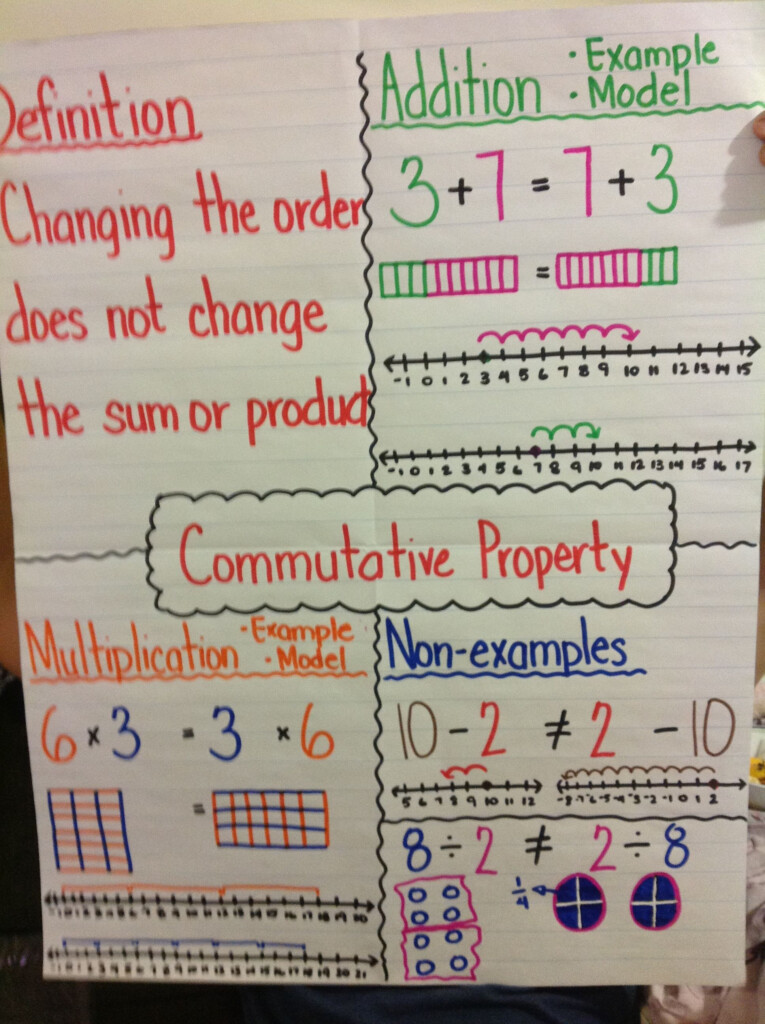 Definition
Changing the order
does not change
the sum or product
Addition
· Example
· Model
3 + 7 = 7 + 3
=
-1 0 1 2 3 4 5 6 7 8 9 10 11 12 13 14 15
-1 0 1 2 3 4 5 6 7 8 9 10 11 12 13 14 15 16 17
Commutative Property
Multiplication
· Example
· Model
6 × 3 = 3 × 6
=
Non-examples
10 - 2 ≠ 2 - 10
5 6 7 8 9 10 11 12
8 ÷ 2 ≠ 2 ÷ 8
1/4